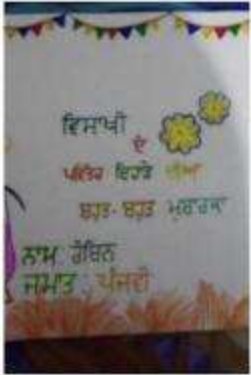 ਵਿਸਾਖੀ
ਦੇ
ਪਵਿੱਤਰ ਦਿਹਾੜੇ ਦੀਆਂ
ਬਹੁਤ-ਬਹੁਤ ਮੁਬਾਰਕਾਂ
ਨਾਮ ਰੋਬਿਨ
ਜਮਾਤ ਪੰਜਵੀਂ